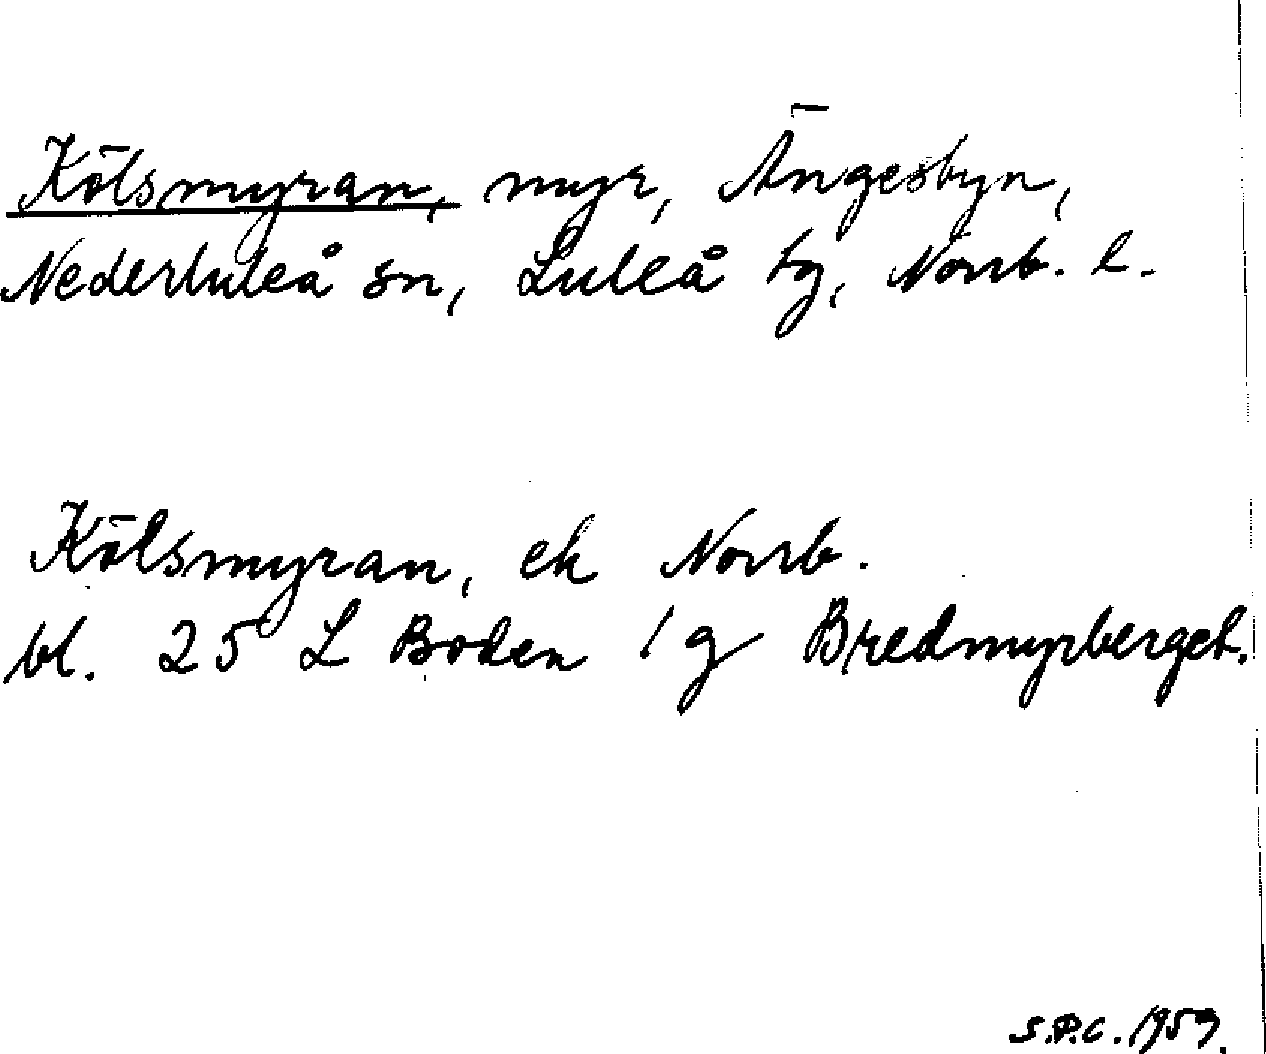 Kölsmyran, myr, Ängesbyn,
Nederluleå sn, Luleå tg, Norrb. l.
Kölsmyran, ek Norrb.
bl. 25 L Boden 1 g Bredmyrberget.
S.P.C. 1959.